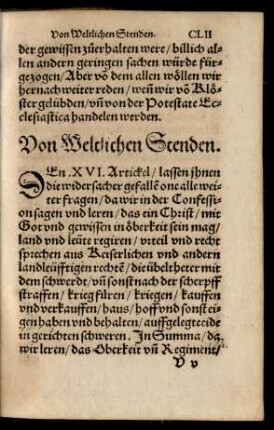 Von Weltlichen Stenden. CLII
der gewissen zůerhalten were/billich al-
len andern geringen sachen würde für-
gezogen/Aber vō dem allen wöllen wir
hernach weiter reden/weñ wir vō Klö-
ster gelübden/vñ von der Potestate Ec-
clesiastica handelen werden.
Von Weltlichen Stenden.
DEn .XVI. Artickel/lassen jhnen
die widersacher gefallē one alle wei-
ter fragen/da wir in der Confessi-
on sagen vnd leren/das ein Christ/mit
Got vnd gewissen in öberkeit sein mag/
land vnd leüt regirn/vrteil vnd recht
sprechen aus Keiserlichen vnd andern
landleüfftigen rechtē/die übeltheter mit
dem schwerdt/vñ sonst nach der scherpff
straffen/krieg füren/kriegen/kauffen
vnd verkauffen/haus/hoff vnd sonst ei-
gen haben vnd behalten/auffgelegte eide
in gerichten schweren. In Summa/da
wir leren/das Oberkeit vñ Regiment/
V v